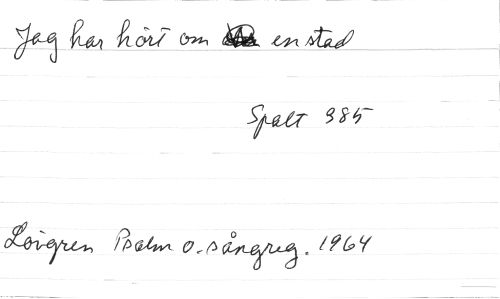 Jag har hört om en stad
Spalt 385
Lövgren Psalm o. sångreg. 1964